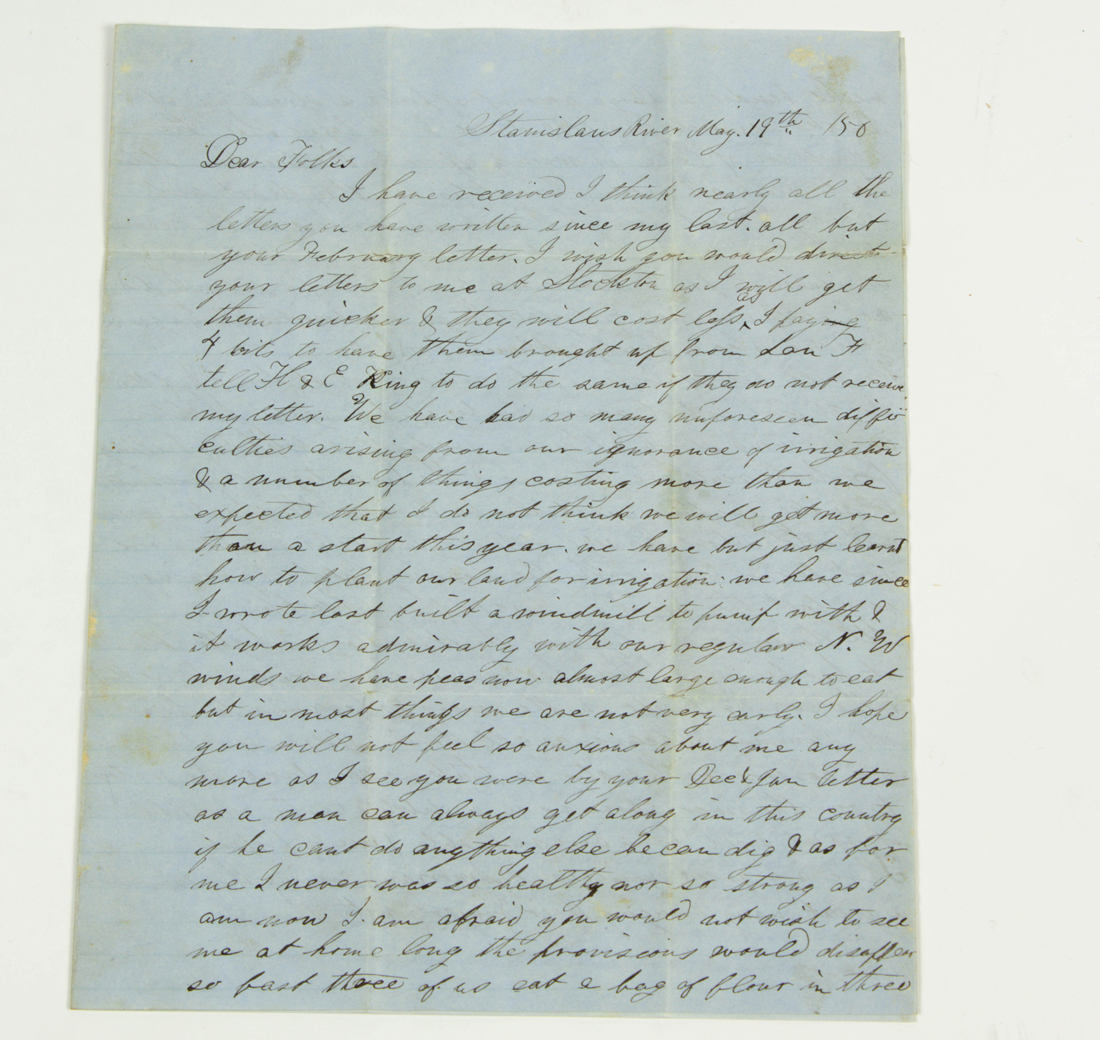 Stanislaus River May. 19th 185
Dear Folks
I have received I think nearly all the
letters you have written since my last. all but
your February letter. I wish you would direct
your letters to me at Stockton as I will get
them quicker & they will cost less, as I pay
4 bits to have them brought up from San F
tell H & E King to do the same if they do not receive
my letter. We have had so many unforeseen diffi
culties arising from our ignorance of irrigation
& a number of things costing more than we
expected that I do not think we will get more
than a start this year. we have but just learnt
how to plant our land for irrigation. we have since
I wrote last built a windmill to pump with &
it works admirably with our regular N. W
winds we have peas now almost large enough to eat
but in most things we are not very early. I hope
you will not feel so anxious about me any
more as I see you were by your Dec & Jan letter
as a man can always get along in this country
if he cant do anything else he can dig & as for
me I never was so healthy nor so strong as I
am now I am afraid you would not wish to see
me at home long the provisions would disappear
so fast three of us eat a bag of flour in three